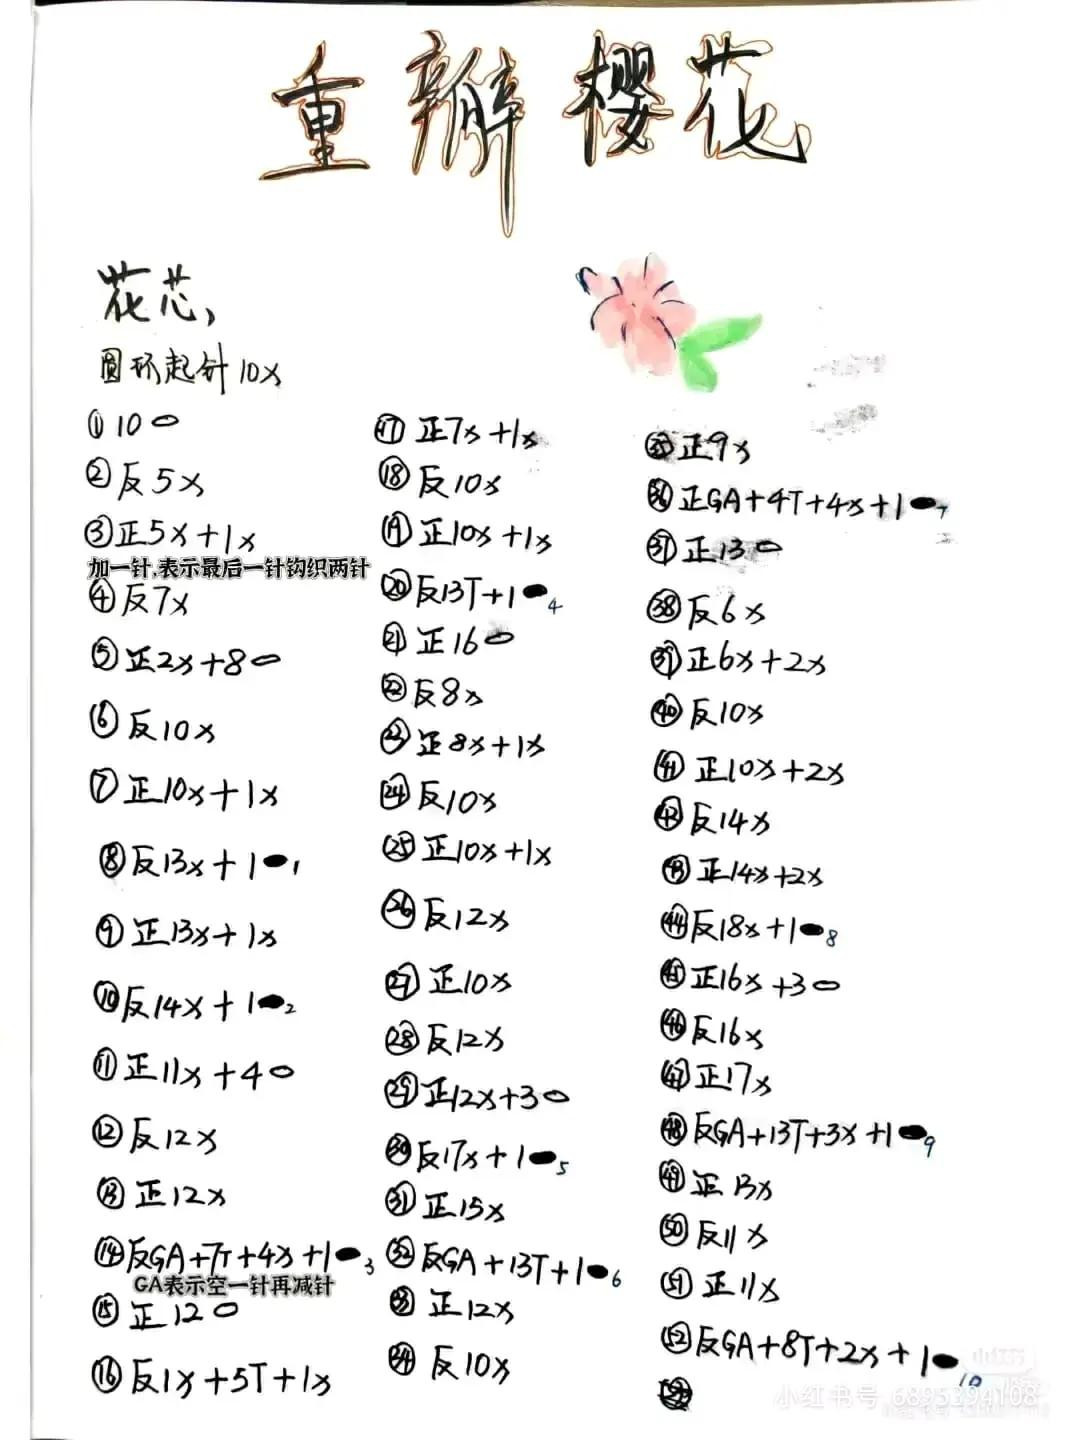 重瓣樱花
花芯,
圆环起针10x
①10⬭
②反5x
③正5x+1x
加一针,表示最后一针钩织两针
④反7x
⑤正2x+8⬭
⑥反10x
⑦正10x+1x
⑧反13x+1⬬1
⑨正13x+1x
⑩反14x+1⬬2
⑪正11x+4⬭
⑫反12x
⑬正12x
⑭反GA+7T+4x+1⬬3
GA表示空一针再减针
⑮正12⬭
⑯反1x+5T+1x
⑰正7x+1x
⑱反10x
⑲正10x+1x
⑳反13T+1⬬4
㉑正16⬭
㉒反8x
㉓正8x+1x
㉔反10x
㉕正10x+1x
㉖反12x
㉗正10x
㉘反12x
㉙正12x+3⬭
㉚反17x+1⬬5
㉛正15x
㉜反GA+13T+1⬬6
㉝正12x
㉞反10x
㉟正9x
㊱正GA+4T+4x+1⬬7
㊲正13⬭
㊳反6x
㊴正6x+2x
㊵反10x
㊶正10x+2x
㊷反14x
㊸正14x+2x
㊹反18x+1⬬8
㊺正16x+3⬭
㊻反16x
㊼正17x
㊽反GA+13T+3x+1⬬9
㊾正13x
㊿反11x
(51)正11x
(52)反GA+8T+2x+1⬬10
小红书号 6895394108